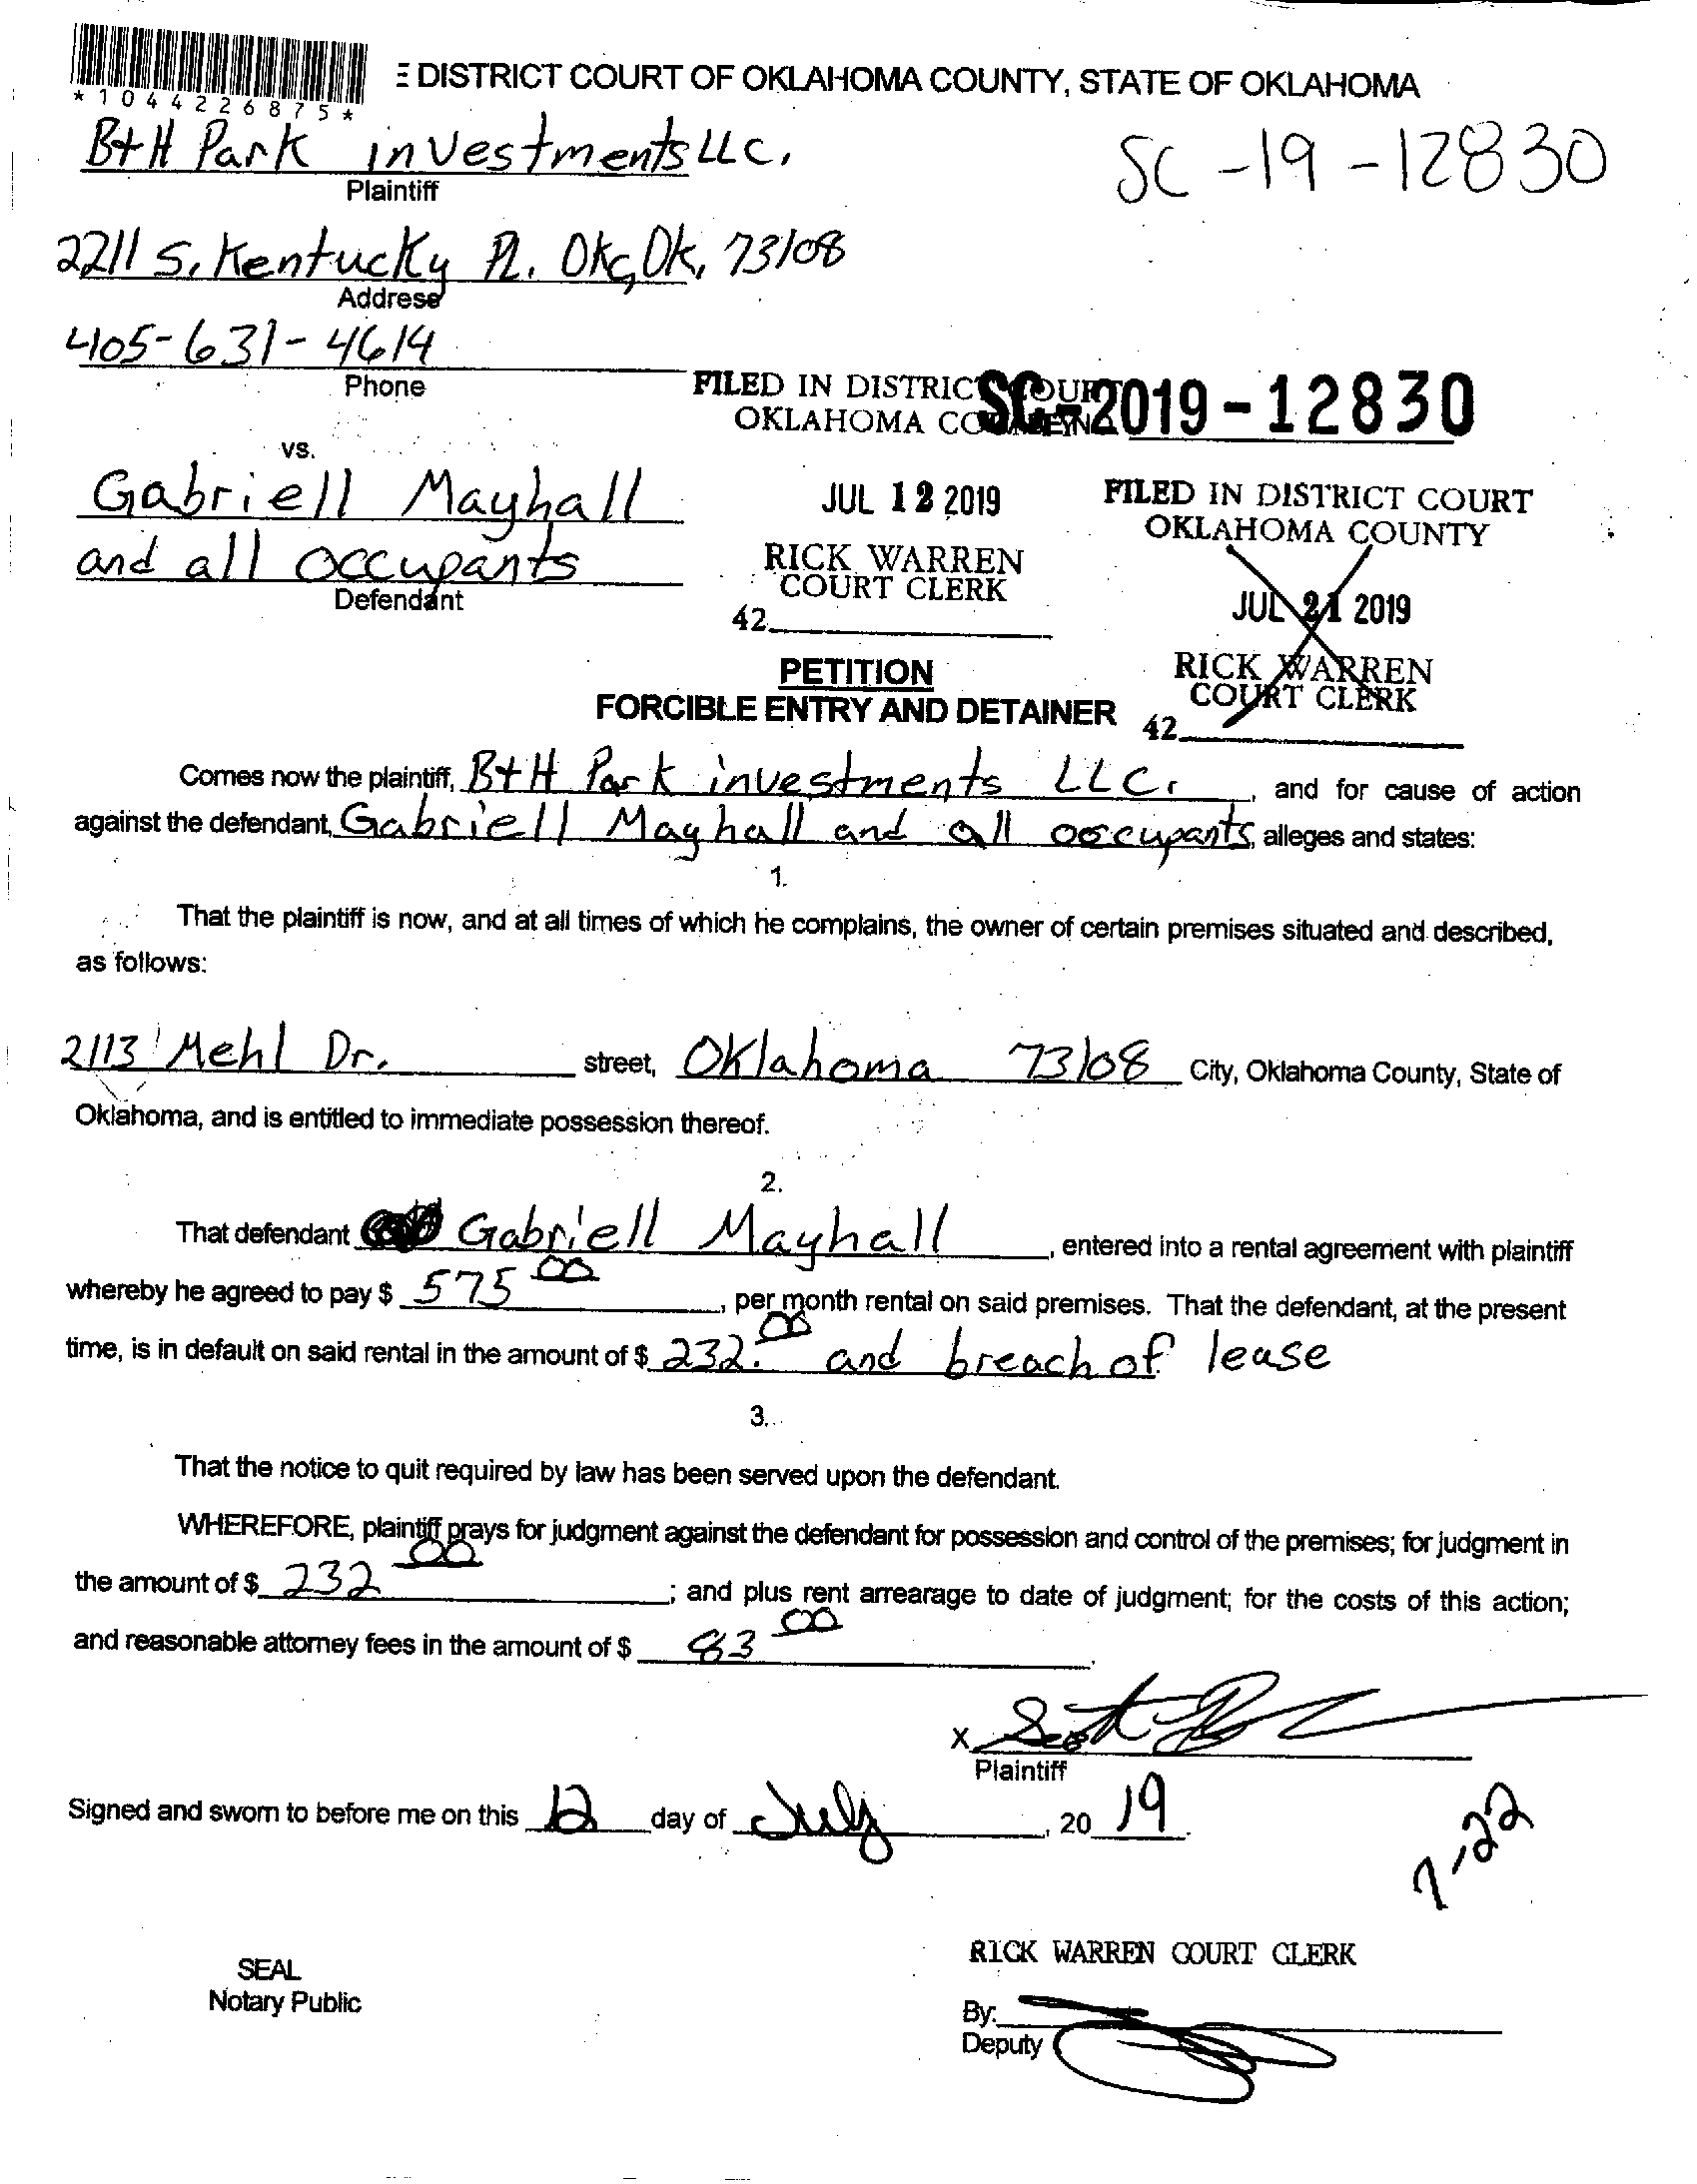 E DISTRICT COURT OF OKLAHOMA COUNTY, STATE OF OKLAHOMA
*1044226875*
B+H Park investments LLC.
Plaintiff
SC-19-12830
2211 S. Kentucky Pl. Okc, Ok, 73108
Address
405-631-4614
Phone
FILED IN DISTRICT COURT
OKLAHOMA COUNTY
SC-2019-12830
vs.
Gabriell Mayhall
and all occupants
Defendant
JUL 12 2019
RICK WARREN
COURT CLERK
42
FILED IN DISTRICT COURT
OKLAHOMA COUNTY
JUL 21 2019
RICK WARREN
COURT CLERK
42
PETITION
FORCIBLE ENTRY AND DETAINER
Comes now the plaintiff, B+H Park investments LLC. , and for cause of action
against the defendant, Gabriell Mayhall and all occupants, alleges and states:
1.
That the plaintiff is now, and at all times of which he complains, the owner of certain premises situated and described,
as follows:
2113 Mehl Dr. street, Oklahoma 73108 City, Oklahoma County, State of
Oklahoma, and is entitled to immediate possession thereof.
2.
That defendant Gabriell Mayhall , entered into a rental agreement with plaintiff
whereby he agreed to pay $ 575 00 , per month rental on said premises. That the defendant, at the present
time, is in default on said rental in the amount of $ 232. 00 and breach of lease
3.
That the notice to quit required by law has been served upon the defendant.
WHEREFORE, plaintiff prays for judgment against the defendant for possession and control of the premises; for judgment in
the amount of $ 232 00 ; and plus rent arrearage to date of judgment; for the costs of this action;
and reasonable attorney fees in the amount of $ 83 00 .
X
Plaintiff
Signed and sworn to before me on this 12 day of July , 20 19 .
7-22
SEAL
Notary Public
RICK WARREN COURT CLERK
By:
Deputy